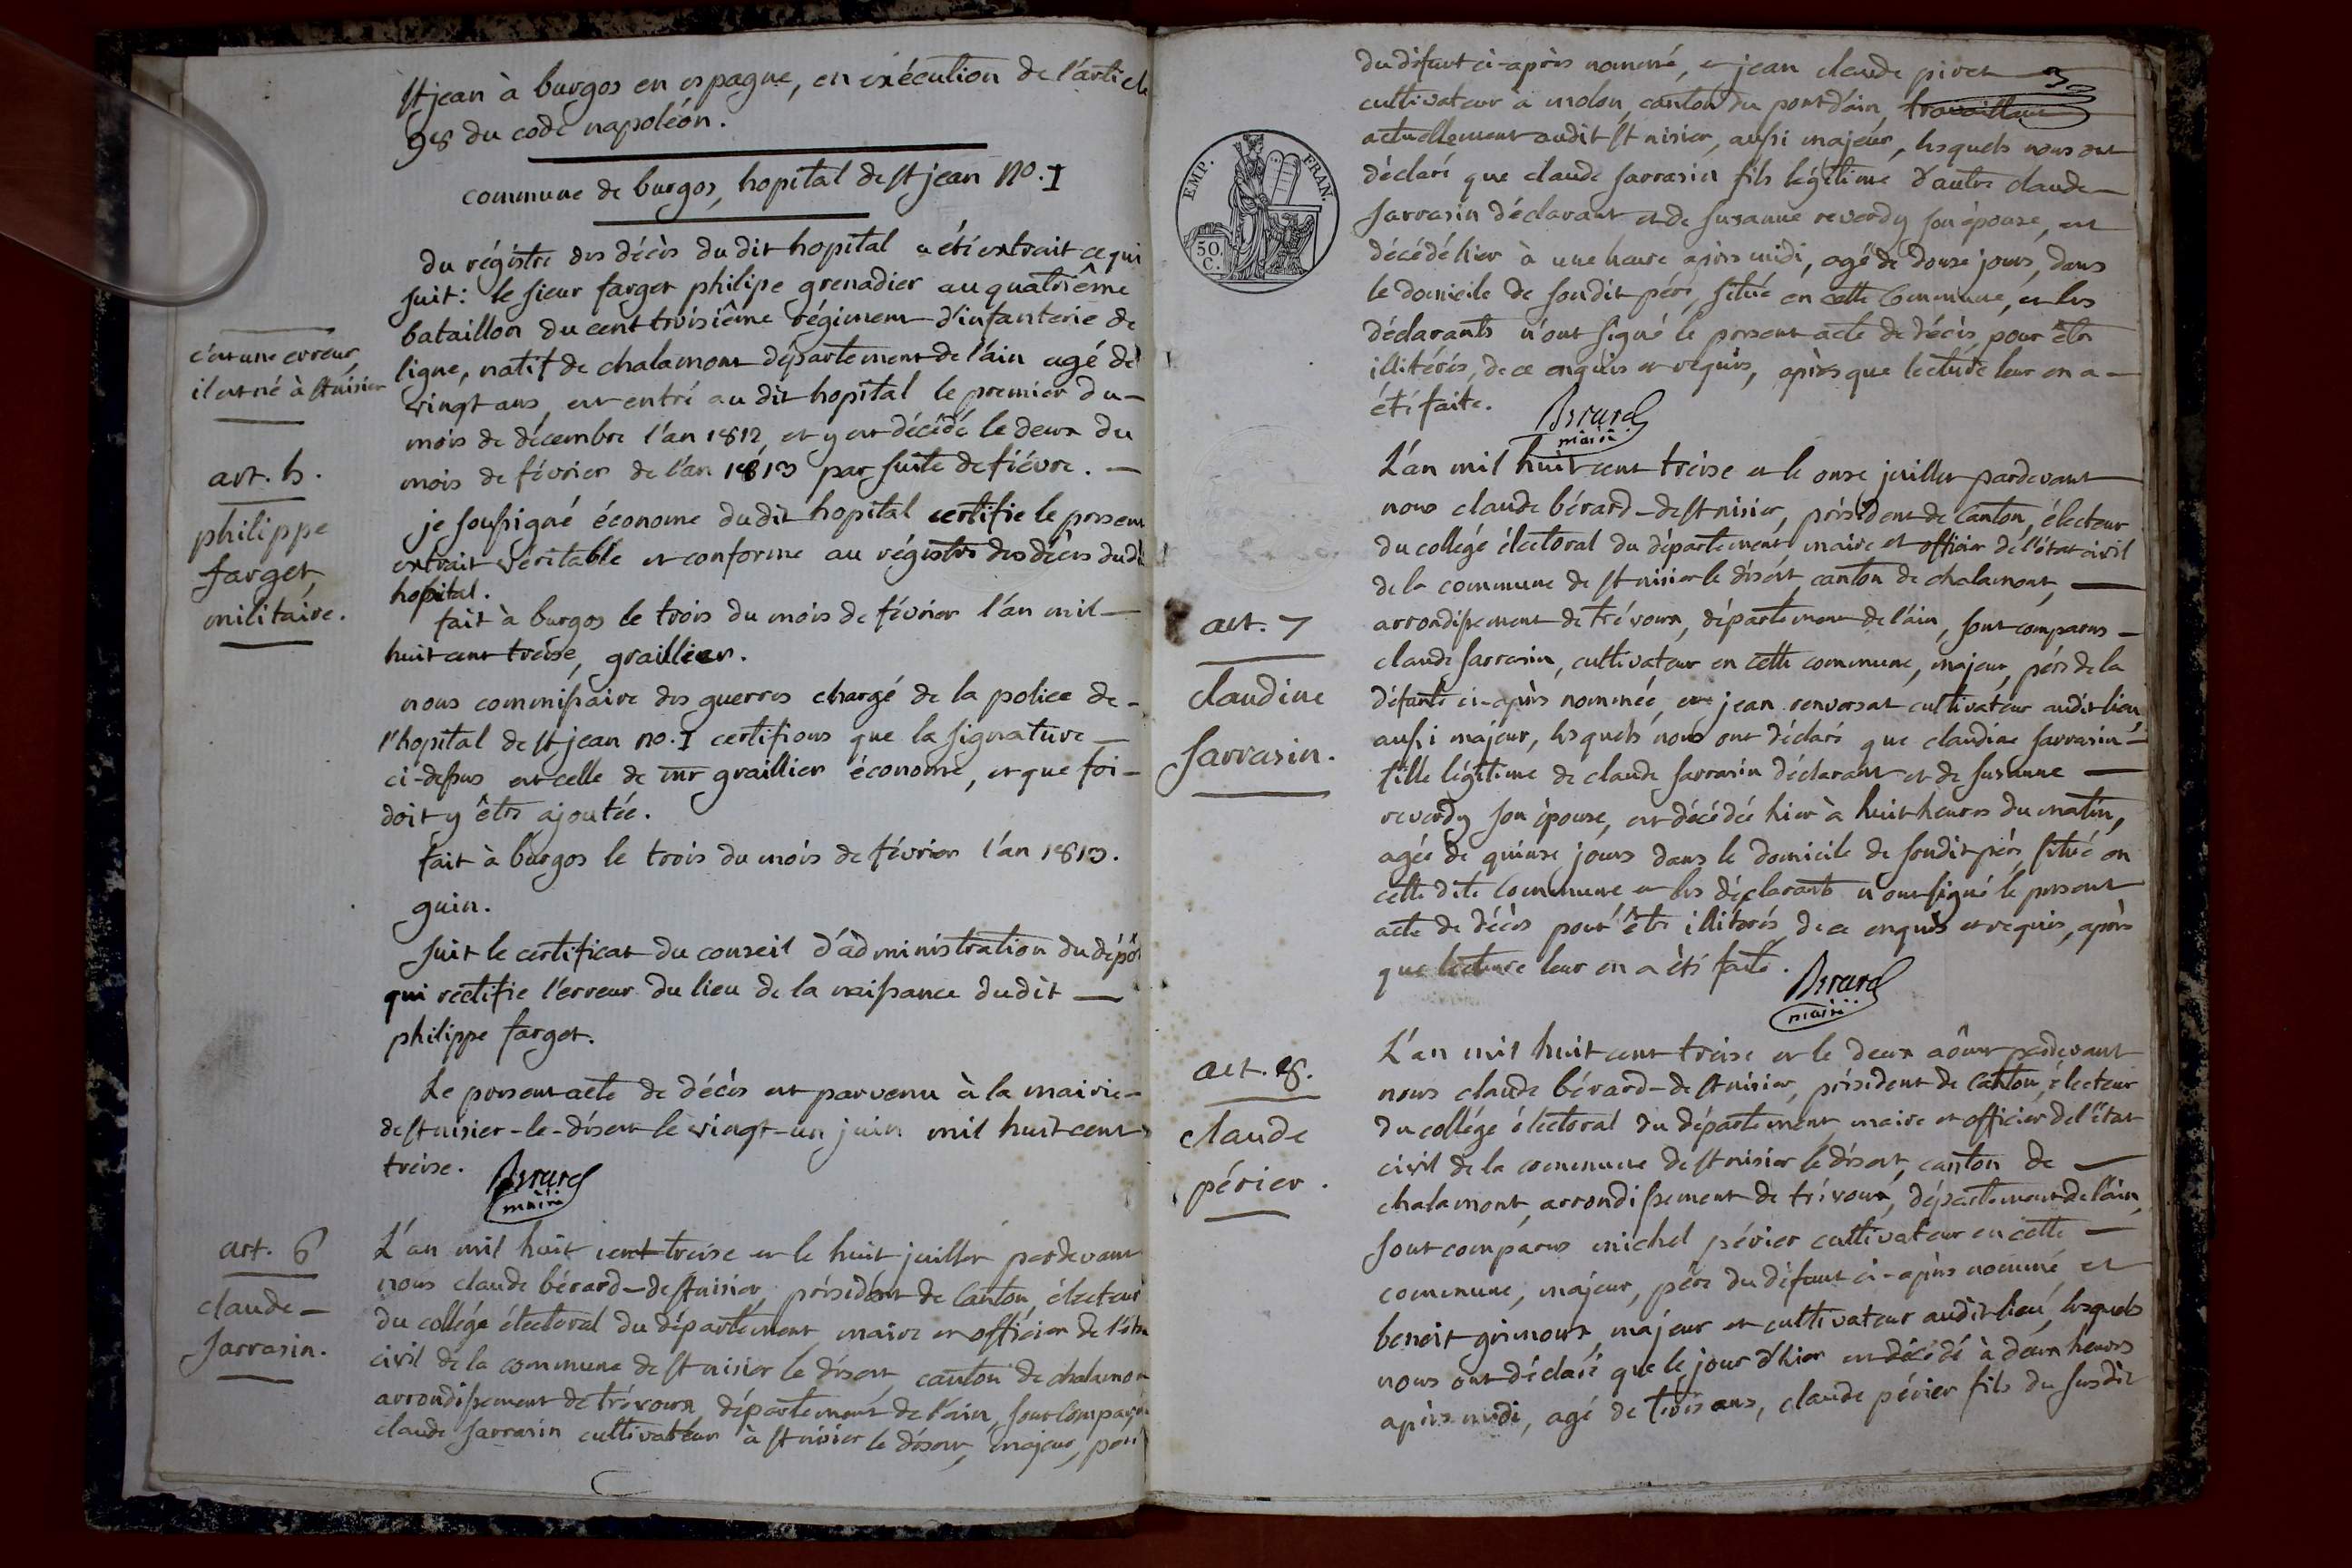 st jean à burgos en espagne, en exécution de l'article
98 du code napoléon.
commune de burgos, hopital de st jean no. I
du régistre des décès du dit hopital a été extrait ce qui
suit: le sieur farget philipe grenadier au quatrième
bataillon du cent troisième régiment d'infanterie de
ligne, natif de chalamont département de l'ain agé de
vingt ans, est entré au dit hopital le premier du
mois de décembre l'an 1812, et y est décédé le deux du
mois de février de l'an 1813 par suite de fiévre.
c'est une erreur,
il est né à st nisier
art. 5.
philippe
farget,
militaire.
je soussigné économe du dit hopital certifie le present
extrait véritable et conforme au régistre des décès dudit
hopital.
fait à burgos le trois du mois de février l'an mil
huit cent treise, graillier.
nous commissaire des guerres chargé de la police de
l'hopital de st jean no. I certifions que la signature
ci-dessus est celle de mr graillier économe, et que foi
doit y être ajoutée.
fait à burgos le trois du mois de février l'an 1813.
guin.
suit le certificat du conseil d'administration du dépôt
qui rectifie l'erreur du lieu de la naissance dudit
philippe farget.
Le present acte de décès est parvenu à la mairie
de st nisier-le-désert le vingt-un juin mil huit cent
treise. Bérard
maire
art. 6
claude
sarrasin.
L'an mil huit cent treise et le huit juillet pardevant
nous claude bérard-de st nisier, président de canton, électeur
du collége électoral du département, maire et officier de l'état
civil de la commune de st nisier le désert, canton de chalamont
arrondissement de trévoux, département de l'ain, sont comparus
claude sarrasin cultivateur à st nisier le désert, majeur, père
du défunt ci-après nommé, et jean claude piret
cultivateur à molon, canton du pont d'ain, travaillant
actuellement audit st nisier, aussi majeur, lesquels nous ont
déclaré que claude sarrasin fils légitime d'autre claude
sarrasin déclarant et de susanne reverdy son épouse, est
décédé hier à une heure après midi, agé de douse jours, dans
le domicile de sondit père, situé en cette commune, et les
déclarants n'ont signé le present acte de décès, pour être
illitérés, de ce enquis et requis, après que lecture leur en a
été faite. Bérard
maire
EMP. FRAN.
50 C.
art. 7
claudine
sarrasin.
L'an mil huit cent treise et le onse juillet pardevant
nous claude bérard-de st nisier, président de canton, électeur
du collégé électoral du département, maire et officier de l'état civil
de la commune de st nisier le désert, canton de chalamont,
arrondissement de trévoux, département de l'ain, sont comparus
claude sarrasin, cultivateur en cette commune, majeur, père de la
défunte ci-après nommée, et jean renversat cultivateur audit lieu,
aussi majeur, lesquels nous ont déclaré que claudine sarrasin
fille légitime de claude sarrasin déclarant et de susanne
reverdy son épouse, est décédée hier à huit heures du matin,
agée de quinse jours dans le domicile de sondit père, situé en
cette dite commune et les déclarants n'ont signé le present
acte de décès pour être illitérés, de ce enquis et requis, après
que lecture leur en a été faite. Bérard
maire
art. 8.
claude
périer.
L'an mil huit cent treise et le deux aôust pardevant
nous claude bérard-de st nisier, président de canton, électeur
du collége électoral du département, maire et officier de l'état
civil de la commune de st nisier le désert, canton de
chalamont, arrondissement de trévoux, département de l'ain,
sont comparus michel périer cultivateur en cette
commune, majeur, père du défunt ci-après nommé et
benoit grimoux, majeur et cultivateur audit lieu, lesquels
nous ont déclaré que le jour d'hier est décédé à deux heures
après midi, agé de trois ans, claude périer fils du susdit